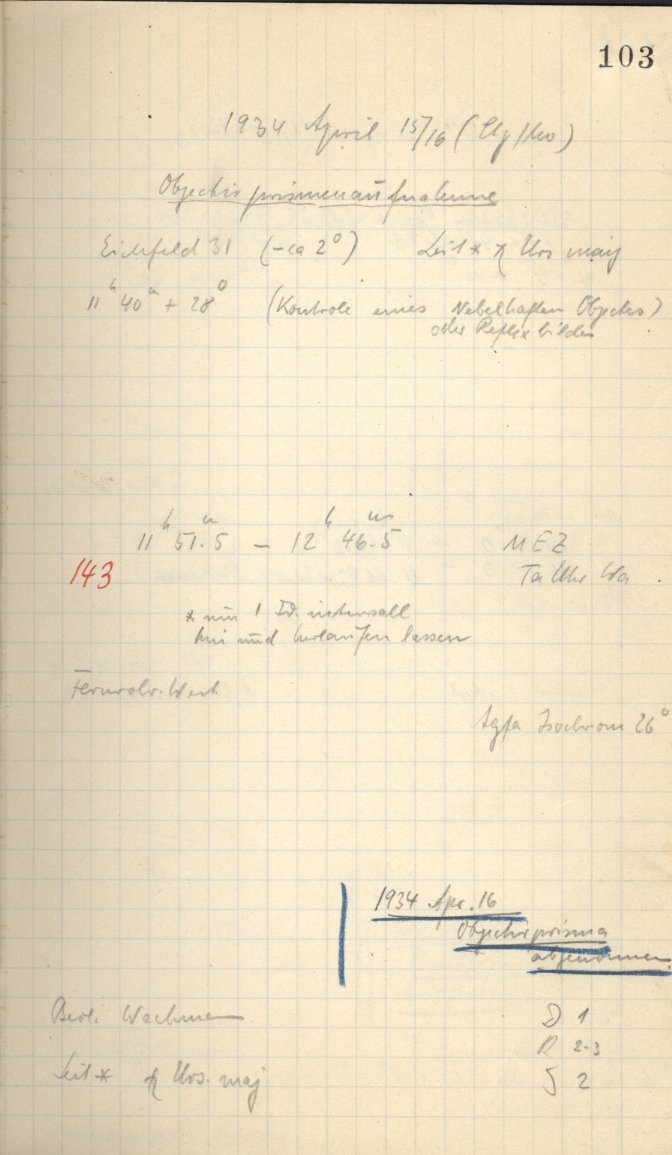 103
1934 April 15/16 (
Objectivprismenaufnahme
Eichfeld 31 (-ca 2°) Leit * χ Urs maj
11h 40m + 28° (Kontrole eines Nebelhaften Objectes)
oder Reflexbildes
11h 51.5 — 12h 46.5 MEZ
143 Ta Uhr Wa
* um 1 Fd. intervall
hin und herlaufen lassen
Fernrohr. West
Agfa Isochrom 26°
1934 Apr. 16
Objectivprisma
abgenommen.
Beob. Wachmann D 1
R 2-3
Leit * χ Urs. maj S 2